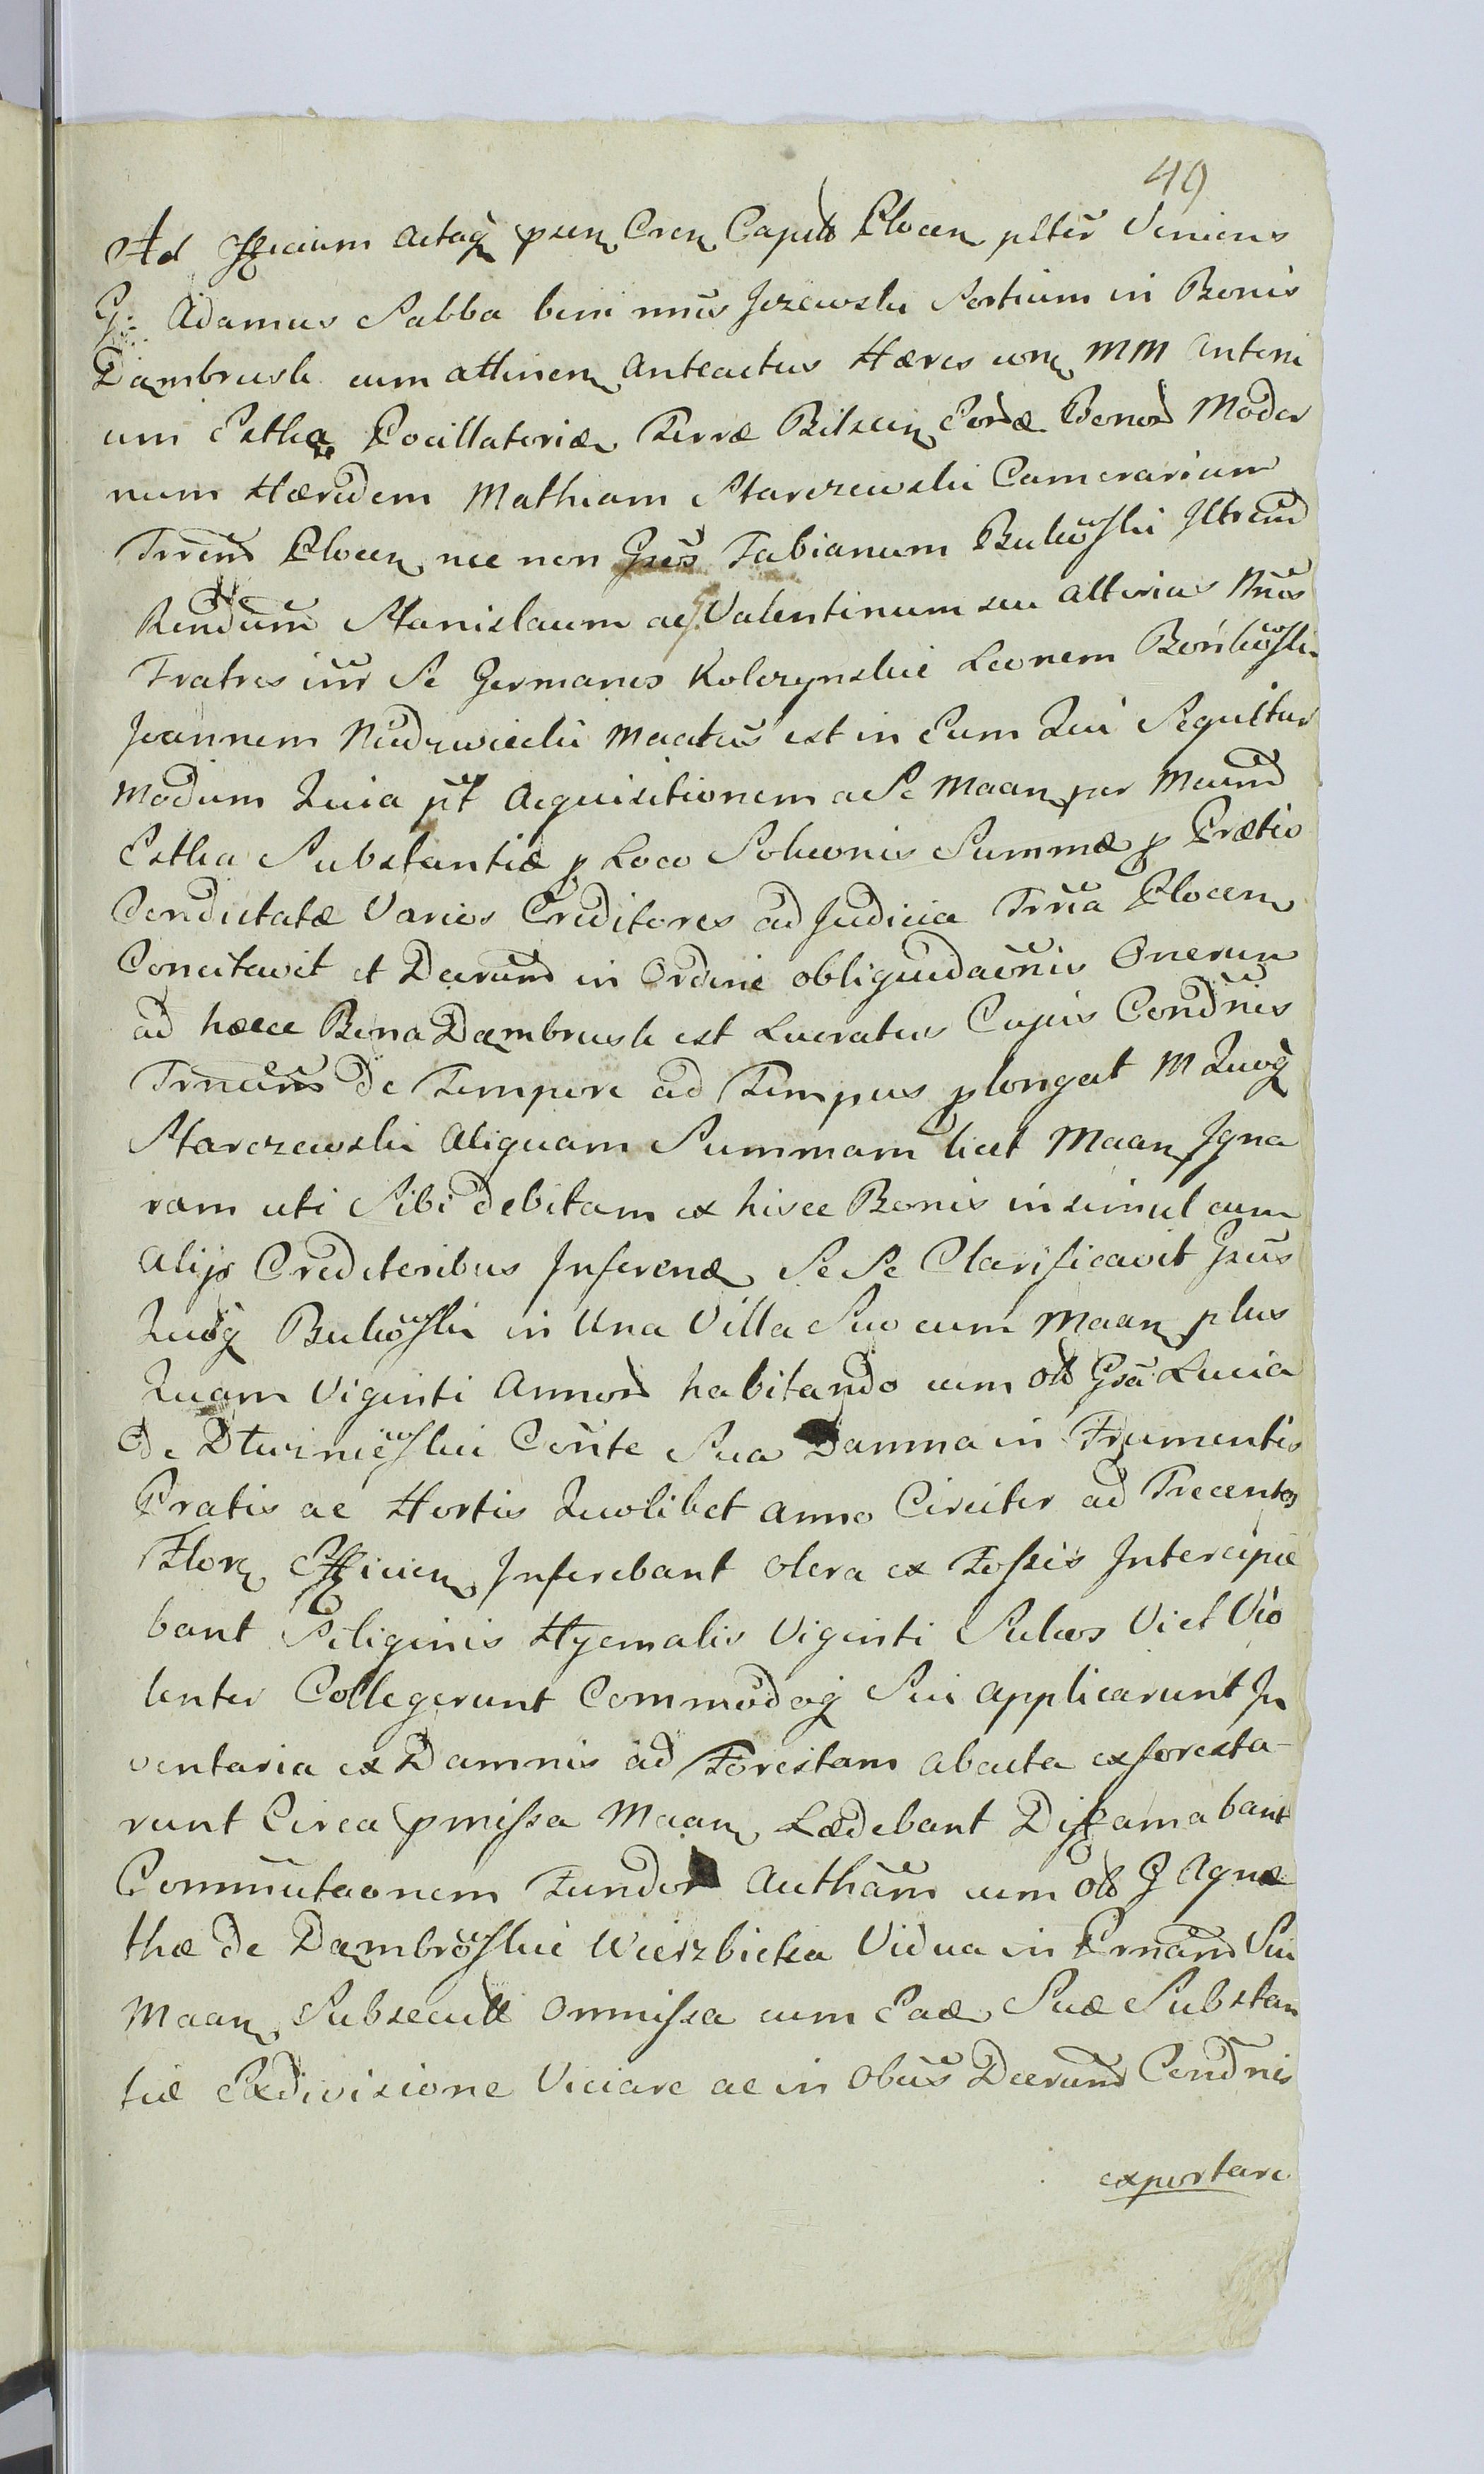 49
Ad Officium Actaq psen Cren Capitt Plocen pltër Veniens
G: Adamus Sabba bini nnis Jezewski Sortium in Bonis
Dąmbrusk cum attinen Anteactus Hæres con MM Antoni
um Estka Pocillatoriæ Terræ Bilscen Eordæ Bonor Moder
num Hæredem Mathiam Starczewski Camerarium
Trrem Plocen nec non Gsos Fabianum Bukowski Iltrem
Rendum Stanislaum ac G. Valentinum seu alterius Nnis
Fratres inr Se Germanos Kolczynskie Leonem Bońkowski
Joannem Niedzwiecki Maatus est in Eum Qui Sequitur
Modum Quia pt Acquisitionem a Se Maan per Meum
Estka Substantiæ p Loco Solueonis Summæ p Prætio
Condictatæ Varios Creditores ad Judicia Trria Plocen
Concitavit et Decrum in Ordine obliquidaonis Onerum
ad hæcce Bona Dąmbrusk est Lucratus Cujus Condnis
Trmum de Tempore ad Tempus plongat M Quoq
Starczewski Aliquam Summam licet Maan Igna
ram uti Sibi debitam ex hisce Bonis in simul cum
Alijs Creditoribus Inferend Se Se Clarificavit Gsus
Quoq Bukowski in Una Villa Suo cum Maan plus
Quam Viginti Annor habitando cum olt Gsa Lucia
de Dtwiniewskie Conte Sua Damna in Frumentis
Pratis ac Hortis Quolibet anno Circiter ad Trecentos
Flor Efficien Inferebant olera ex Fossis Intercipie
bant Siliginis Hyemalis Viginti Sulcos Vi et Vio
lenter Collegerunt Commodoq Sui applicarunt In
ventaria ex Damnis ad Forestam abacta exforesta-
runt Circa pmissa Maan Lædebant Diffamabant
Commutaonem Fundor Autham cum olt G Agna
tha de Dąmbrowskie Wierzbicka Vidua in Prnam Sui
Maan Subsecutt Ommissa cum Eadæ Suæ Substan
tiæ Exdivisione Viciare ac in Obus Decrum Condnis
exportare